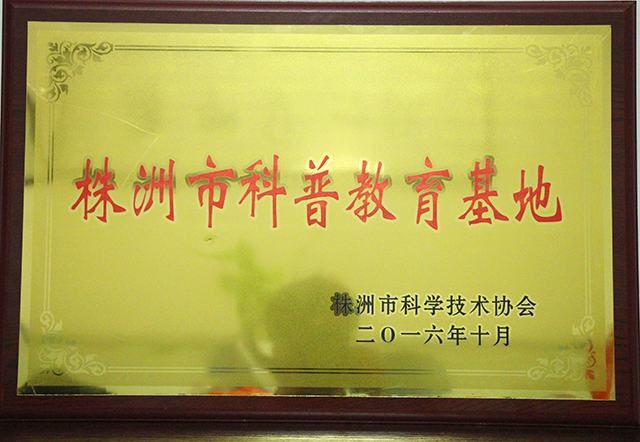 株洲市科普教育基地
株洲市科学技术协会
二O一六年十月